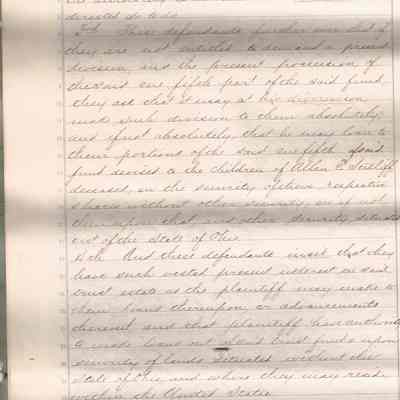 directed so to do
3rd These defendants further aver that if
they are not entitled to demand a present
division, and the present possession of
the said one fifth part of the said fund,
they ask that it may at his discretion
make such division to them absolutely,
and if not absolutely, that he may loan to
them portions of the said one fifth of said
fund devised to the children of Allen
deceased, on the security of their respective
shares without other security, or if not
then upon that and other security situated
out of the State of Ohio
4th And these defendants insist that they
have such vested present interest in said
trust estate as the plaintiff may make to
them loans thereupon or advancements
thereof and that plaintiff have authority
to make loans out of said trust funds upon
security of lands situated without the
State of Ohio, and where they may reside
within the United States